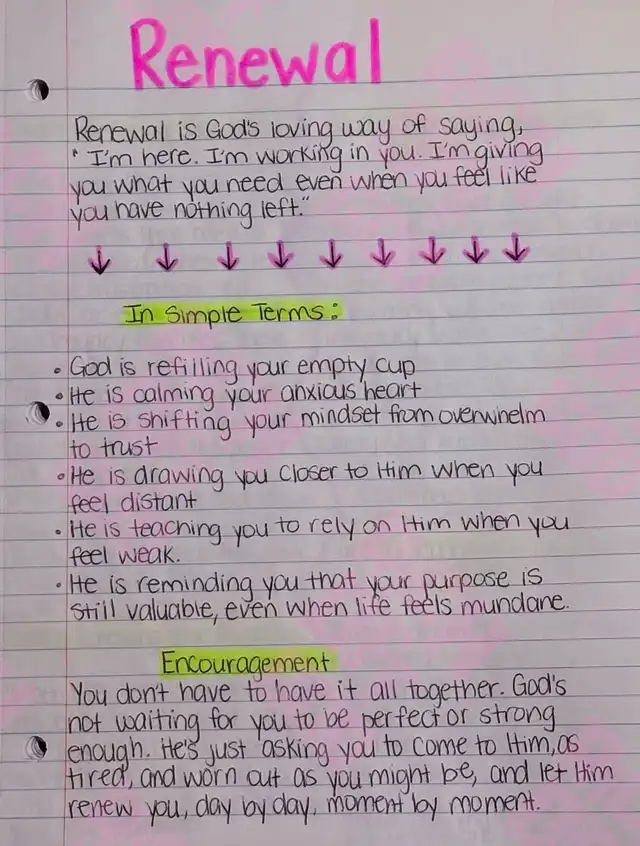 Renewal
Renewal is God's loving way of saying,
"I'm here. I'm working in you. I'm giving
you what you need even when you feel like
you have nothing left."
↓ ↓ ↓ ↓ ↓ ↓ ↓ ↓ ↓
In Simple Terms:
• God is refilling your empty cup
• He is calming your anxious heart
• He is shifting your mindset from overwhelm
to trust
• He is drawing you closer to Him when you
feel distant
• He is teaching you to rely on Him when you
feel weak.
• He is reminding you that your purpose is
still valuable, even when life feels mundane.
Encouragement
You don't have to have it all together. God's
not waiting for you to be perfect or strong
enough. He's just asking you to come to Him, as
tired, and worn out as you might be, and let Him
renew you, day by day, moment by moment.